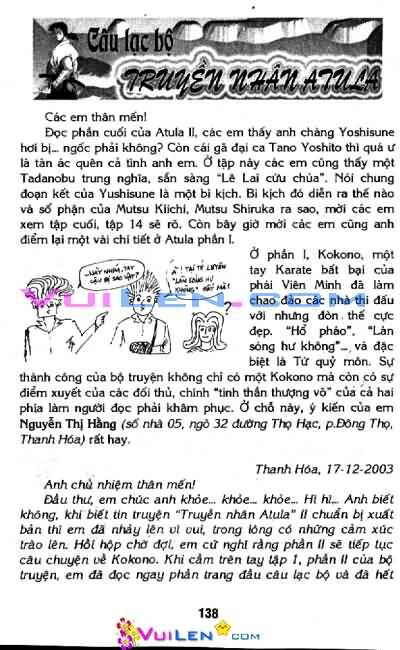 Câu lạc bộ
TRUYỀN NHÂN ATULA
Các em thân mến!
Đọc phần cuối của Atula II, các em thấy anh chàng Yoshisune
hơi bị... ngốc phải không? Còn cái gã đại ca Tano Yoshito thì quá ư
là tàn ác quên cả tình anh em. Ở tập này các em cũng thấy một
Tadanobu trung nghĩa, sẵn sàng "Lê Lai cứu chúa". Nói chung
đoạn kết của Yushisune là một bi kịch. Bi kịch đó diễn ra thế nào
và số phận của Mutsu Kiichi, Mutsu Shiruka ra sao, mời các em
xem tập cuối, tập 14 sẽ rõ. Còn bây giờ mời các em cũng anh
điểm lại một vài chi tiết ở Atula phần I.
Ở phần I, Kokono, một
tay Karate bất bại của
phái Viên Minh đã làm
chao đảo các nhà thi đấu
với nhưng đòn thế cực
đẹp. "Hổ pháo", "Làn
sóng hư không"... và đặc
biệt là Tứ quỷ môn. Sự
...NÀY NHÍM, TAY
CẬU BỊ SAO VẬY?
À! TẠI TỚ LUYỆN
"LÀN SÓNG HƯ
KHÔNG" ĐẤY MÀ!
?
VUILEN.COM
thành công của bộ truyện không chỉ có một Kokono mà còn có sự
điểm xuyết của các đối thủ, chinh "tinh thần thượng võ" của cả hai
phia làm người đọc phải khâm phục. Ở chỗ này, ý kiến của em
Nguyễn Thị Hằng (số nhà 05, ngõ 32 đường Thọ Hạc, p.Đông Thọ,
Thanh Hóa) rất hay.
Thanh Hóa, 17-12-2003
Anh chủ nhiệm thân mến!
Đầu thư, em chúc anh khỏe... khỏe... khỏe... Hì hì... Anh biết
không, khi biết tin truyện "Truyền nhân Atula" II chuẩn bị xuất
bản thì em đã nhảy lên vì vui, trong lòng có những cảm xúc
trào lên. Hồi hộp chờ đợi, em cứ nghĩ rằng phần II sẽ tiếp tục
câu chuyện về Kokono. Khi cầm trên tay tập 1, phần II của bộ
truyện, em đã đọc ngay phần trang đầu câu lạc bộ và đã hết
138
VUILEN.COM